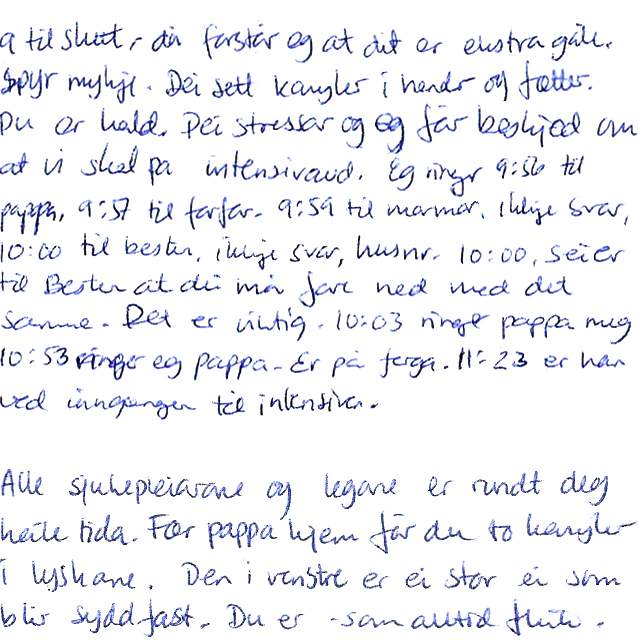 a til slutt, då forstår eg at det er ekstra gale.
Spyr mykje. Dei sett kanyler i hender og føtter.
Du er kald. Dei stressar og eg får beskjed om
at vi skal på intensivavd. Eg ringer 9:56 til
pappa, 9:57 til farfar. 9:59 til mormor, ikkje svar,
10:00 til besten, ikkje svar, husnr. 10:00, seier
til Besten at dei må fare ned med det
samme. Det er viktig. 10:03 ringer pappa meg
10:53 ringer eg pappa. Er på ferga. 11:23 er han
ved inngangen til intensiven.
Alle sjukepleiarane og legane er rundt deg
heile tida. Før pappa kjem får du to kanyler
i lyskane. Den i venstre er ei stor ei som
blir sydd fast. Du er - som alltid flink.